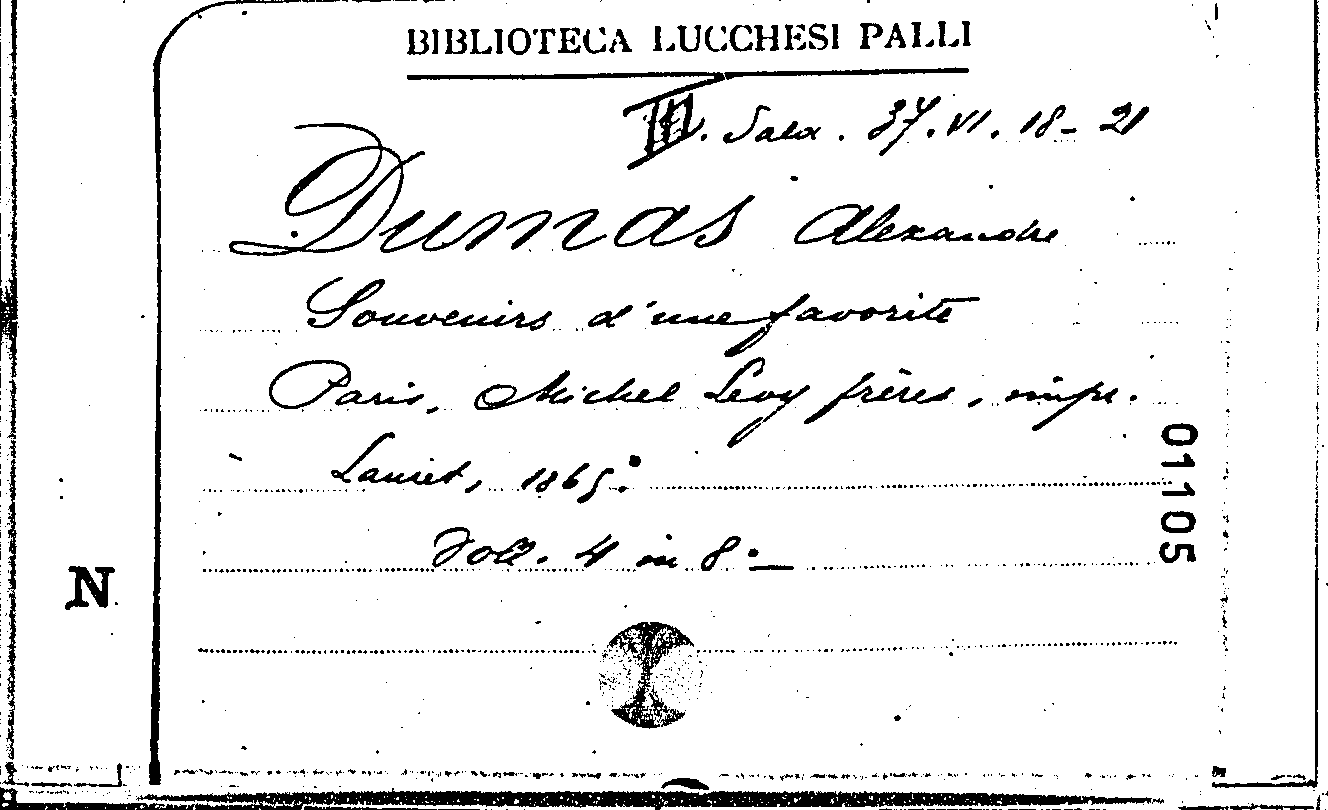 BIBLIOTECA LUCCHESI PALLI
III. Sala. 37. VI. 18-21
Dumas Alexandre
Souvenirs d'une favorite
Paris, Michel Levy frères, impr.
1865.
Voll. 4 in 8.° —
01105
N